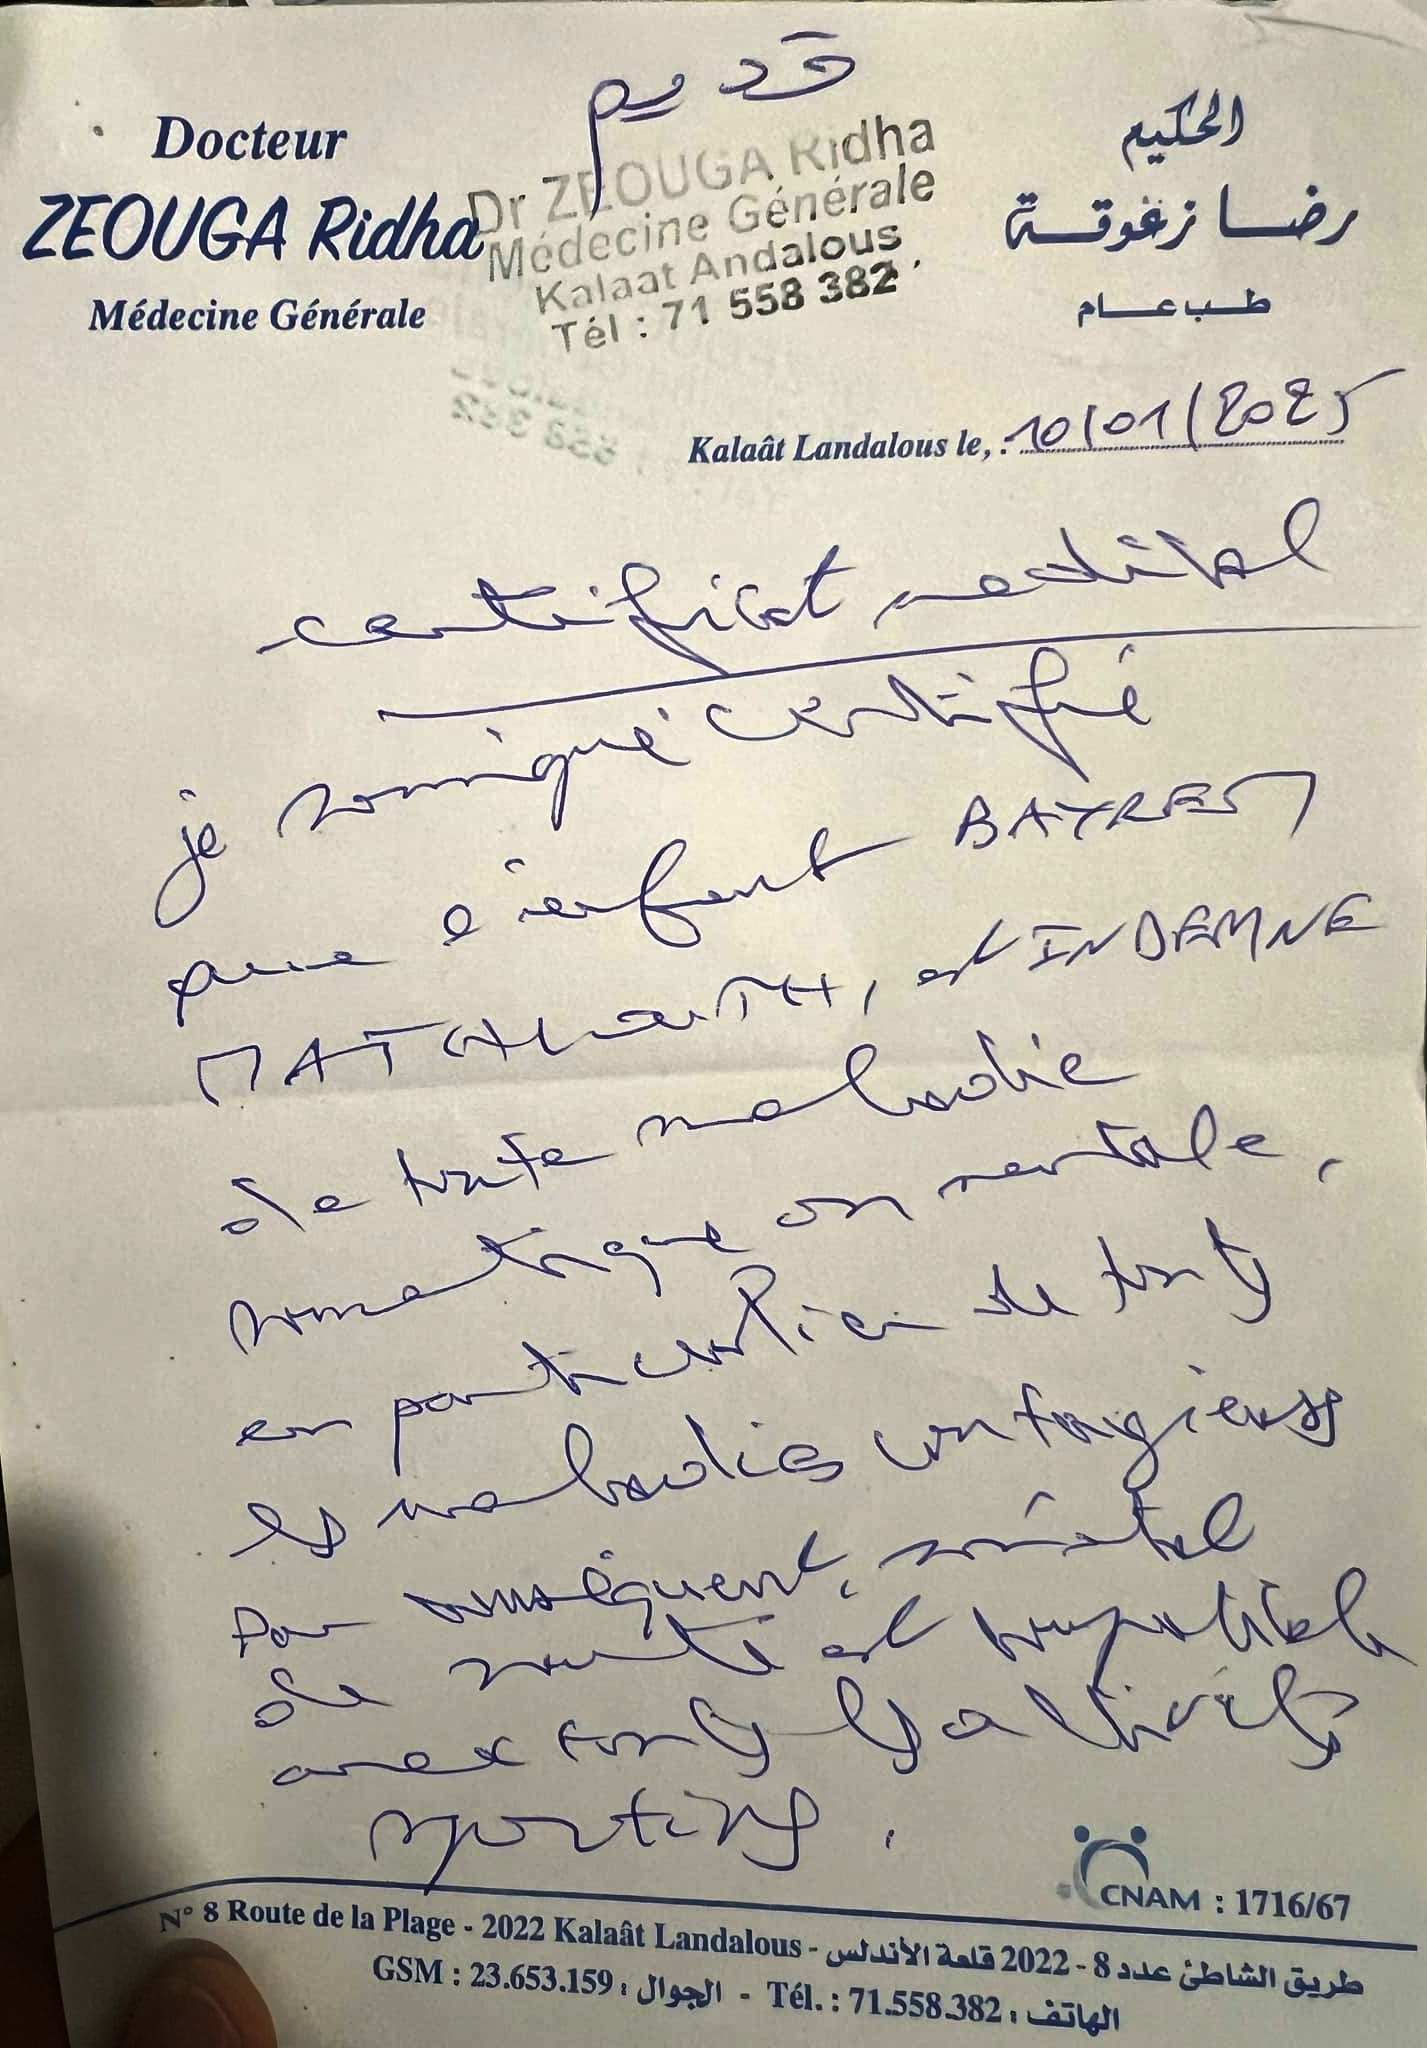 قديم
Docteur
ZEOUGA Ridha
Médecine Générale
Dr ZEOUGA Ridha
Médecine Générale
Kalaat Andalous
Tél : 71 558 382
الحكيم
رضا زغوقة
طب عام
Kalaât Landalous le, : 10/01/2025
certificat médical
je soussigné certifié
que l'enfant BAYREM
est INDEMNE
de toute maladie
somatique ou mentale,
en particulier de tout
es maladies contagieuses
Par conséquent, son état
de santé est compatible
avec tout les activités
sportives.
CNAM : 1716/67
N° 8 Route de la Plage - 2022 Kalaât Landalous - طريق الشاطئ عدد 8 - 2022 قلعة الأندلس
GSM : 23.653.159 : الجوال - Tél. : 71.558.382 : الهاتف